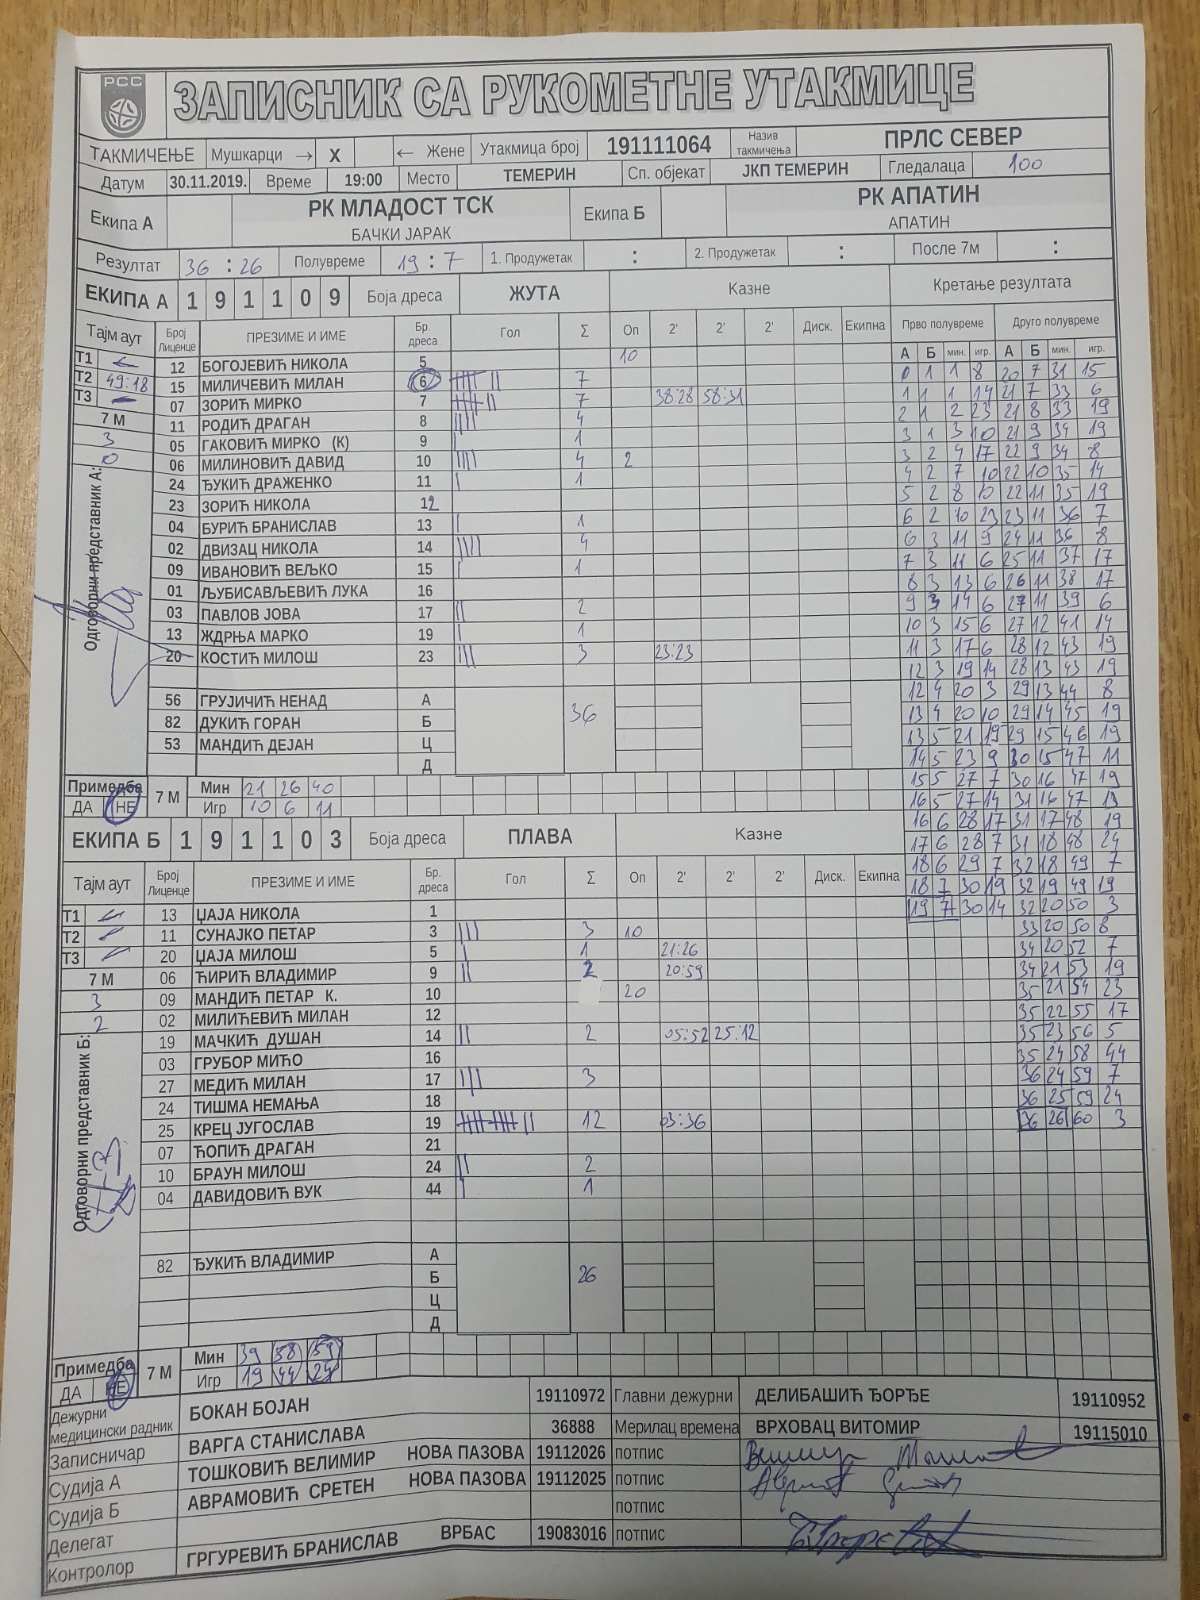 РСС
ЗАПИСНИК СА РУКОМЕТНЕ УТАКМИЦЕ
ТАКМИЧЕЊЕ Мушкарци → X ← Жене Утакмица број 191111064 Назив такмичења ПРЛС СЕВЕР
Датум 30.11.2019. Време 19:00 Место ТЕМЕРИН Сп. објекат ЈКП ТЕМЕРИН Гледалаца 100
Екипа А РК МЛАДОСТ ТСК БАЧКИ ЈАРАК Екипа Б РК АПАТИН АПАТИН
Резултат 36 : 26 Полувреме 19 : 7 1. Продужетак : 2. Продужетак : После 7м :
ЕКИПА А 1 9 1 1 0 9 Боја дреса ЖУТА Казне Кретање резултата
Тајм аут Број Лиценце ПРЕЗИМЕ И ИМЕ Бр. дреса Гол Σ Оп 2' 2' 2' Диск. Екипна Прво полувреме Друго полувреме
А Б мин. игр. А Б мин. игр.
Т1 12 БОГОЈЕВИЋ НИКОЛА 5 10 0 1 1 8 20 7 31 15
Т2 49:18 15 МИЛИЧЕВИЋ МИЛАН 6 7 1 1 1 14 21 7 33 6
Т3 07 ЗОРИЋ МИРКО 7 7 38:28 58:31 2 1 2 23 21 8 33 19
7 М 11 РОДИЋ ДРАГАН 8 4 3 1 3 10 21 9 34 19
3 05 ГАКОВИЋ МИРКО (К) 9 1 3 2 4 17 22 9 34 8
0 06 МИЛИНОВИЋ ДАВИД 10 4 2 4 2 7 10 22 10 35 14
Одговорни представник А:
24 ЂУКИЋ ДРАЖЕНКО 11 1 5 2 8 10 22 11 35 19
23 ЗОРИЋ НИКОЛА 12 6 2 10 23 23 11 36 7
04 БУРИЋ БРАНИСЛАВ 13 1 6 3 11 9 24 11 36 8
02 ДВИЗАЦ НИКОЛА 14 4 7 3 11 6 25 11 37 17
09 ИВАНОВИЋ ВЕЉКО 15 1 8 3 13 6 26 11 38 17
01 ЉУБИСАВЉЕВИЋ ЛУКА 16 9 3 14 6 27 11 39 6
03 ПАВЛОВ ЈОВА 17 2 10 3 15 6 27 12 41 14
13 ЖДРЊА МАРКО 19 1 11 3 17 6 28 12 43 19
20 КОСТИЋ МИЛОШ 23 3 23:23 12 3 19 14 28 13 43 19
12 4 20 3 29 13 44 8
56 ГРУЈИЧИЋ НЕНАД А 36 13 4 20 10 29 14 45 19
82 ДУКИЋ ГОРАН Б 13 5 21 19 29 15 46 19
53 МАНДИЋ ДЕЈАН Ц 14 5 23 9 30 15 47 11
Д 15 5 27 7 30 16 47 19
Примедба ДА НЕ 7 М Мин 21 26 40 16 5 27 14 31 16 47 13
Игр 10 6 11 16 6 28 17 31 17 48 19
ЕКИПА Б 1 9 1 1 0 3 Боја дреса ПЛАВА Казне 17 6 28 7 31 18 48 24
18 6 29 7 32 18 49 7
Тајм аут Број Лиценце ПРЕЗИМЕ И ИМЕ Бр. дреса Гол Σ Оп 2' 2' 2' Диск. Екипна 18 7 30 19 32 19 49 19
Т1 13 ЏАЈА НИКОЛА 1 19 7 30 14 32 20 50 3
Т2 11 СУНАЈКО ПЕТАР 3 3 10 33 20 50 8
Т3 20 ЏАЈА МИЛОШ 5 1 21:26 34 20 52 7
7 М 06 ЋИРИЋ ВЛАДИМИР 9 2 20:59 34 21 53 19
3 09 МАНДИЋ ПЕТАР К. 10 20 35 21 54 23
2 02 МИЛИЋЕВИЋ МИЛАН 12 35 22 55 17
Одговорни представник Б:
19 МАЧКИЋ ДУШАН 14 2 05:52 25:12 35 23 56 5
03 ГРУБОР МИЋО 16 35 24 58 44
27 МЕДИЋ МИЛАН 17 3 36 24 59 7
24 ТИШМА НЕМАЊА 18 36 25 59 24
25 КРЕЦ ЈУГОСЛАВ 19 12 03:36 36 26 60 3
07 ЋОПИЋ ДРАГАН 21
10 БРАУН МИЛОШ 24 2
04 ДАВИДОВИЋ ВУК 44 1
82 ЂУКИЋ ВЛАДИМИР А
Б 26
Ц
Д
Примедба ДА НЕ 7 М Мин 39 58 59
Игр 19 44 24
Дежурни медицински радник БОКАН БОЈАН 19110972 Главни дежурни ДЕЛИБАШИЋ ЂОРЂЕ 19110952
Записничар ВАРГА СТАНИСЛАВА 36888 Мерилац времена ВРХОВАЦ ВИТОМИР 19115010
Судија А ТОШКОВИЋ ВЕЛИМИР НОВА ПАЗОВА 19112026 потпис
Судија Б АВРАМОВИЋ СРЕТЕН НОВА ПАЗОВА 19112025 потпис
Делегат потпис
Контролор ГРГУРЕВИЋ БРАНИСЛАВ ВРБАС 19083016 потпис